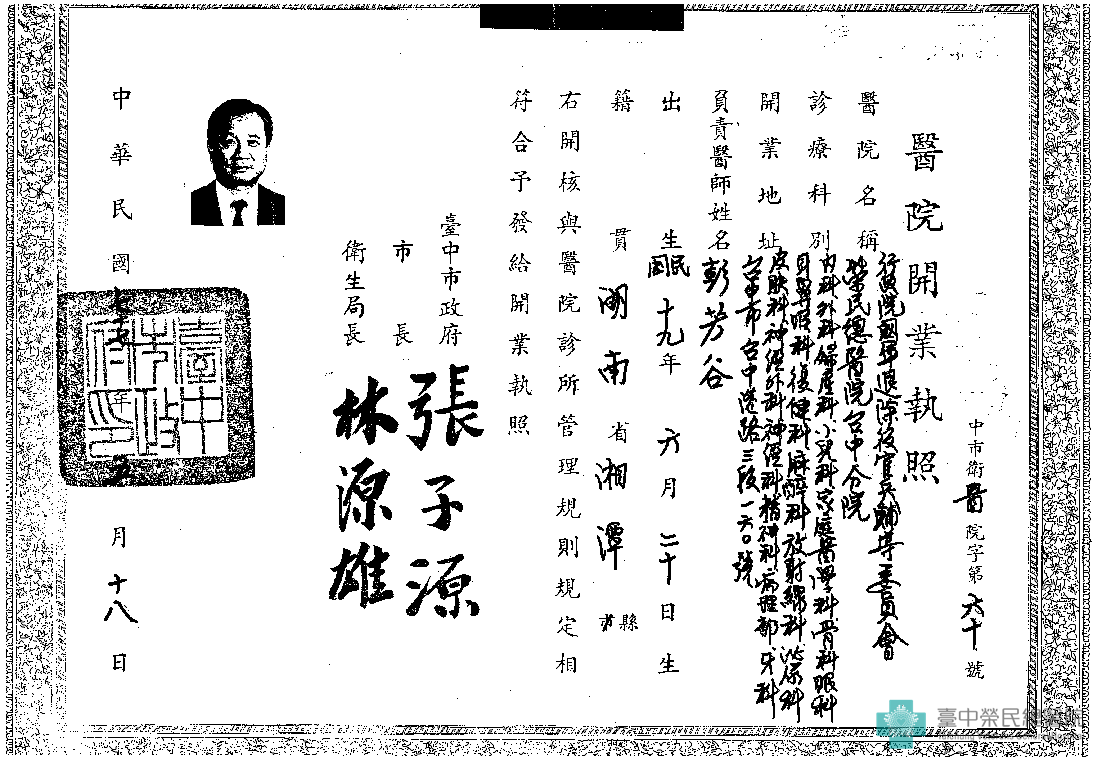 醫院開業執照
中市衛醫院字第六十號
醫院名稱 行政院國軍退除役官兵輔導委員會
榮民總醫院台中分院
診療科別 內科外科婦產科小兒科家庭醫學科骨科眼科
耳鼻喉科復健科麻醉科放射線科泌尿科
皮膚科神經外科神經科精神科病理部牙科
開業地址 台中市台中港路三段一六〇號
負責醫師姓名 彭芳谷
出生 民國十九年六月二十日生
籍貫 湖南省湘潭縣市
右開核與醫院診所管理規則規定相
符合予發給開業執照
臺中市政府
市長 張子源
衛生局長 林源雄
中華民國七十五年五月十八日
臺中市政府印
臺中榮民總醫院